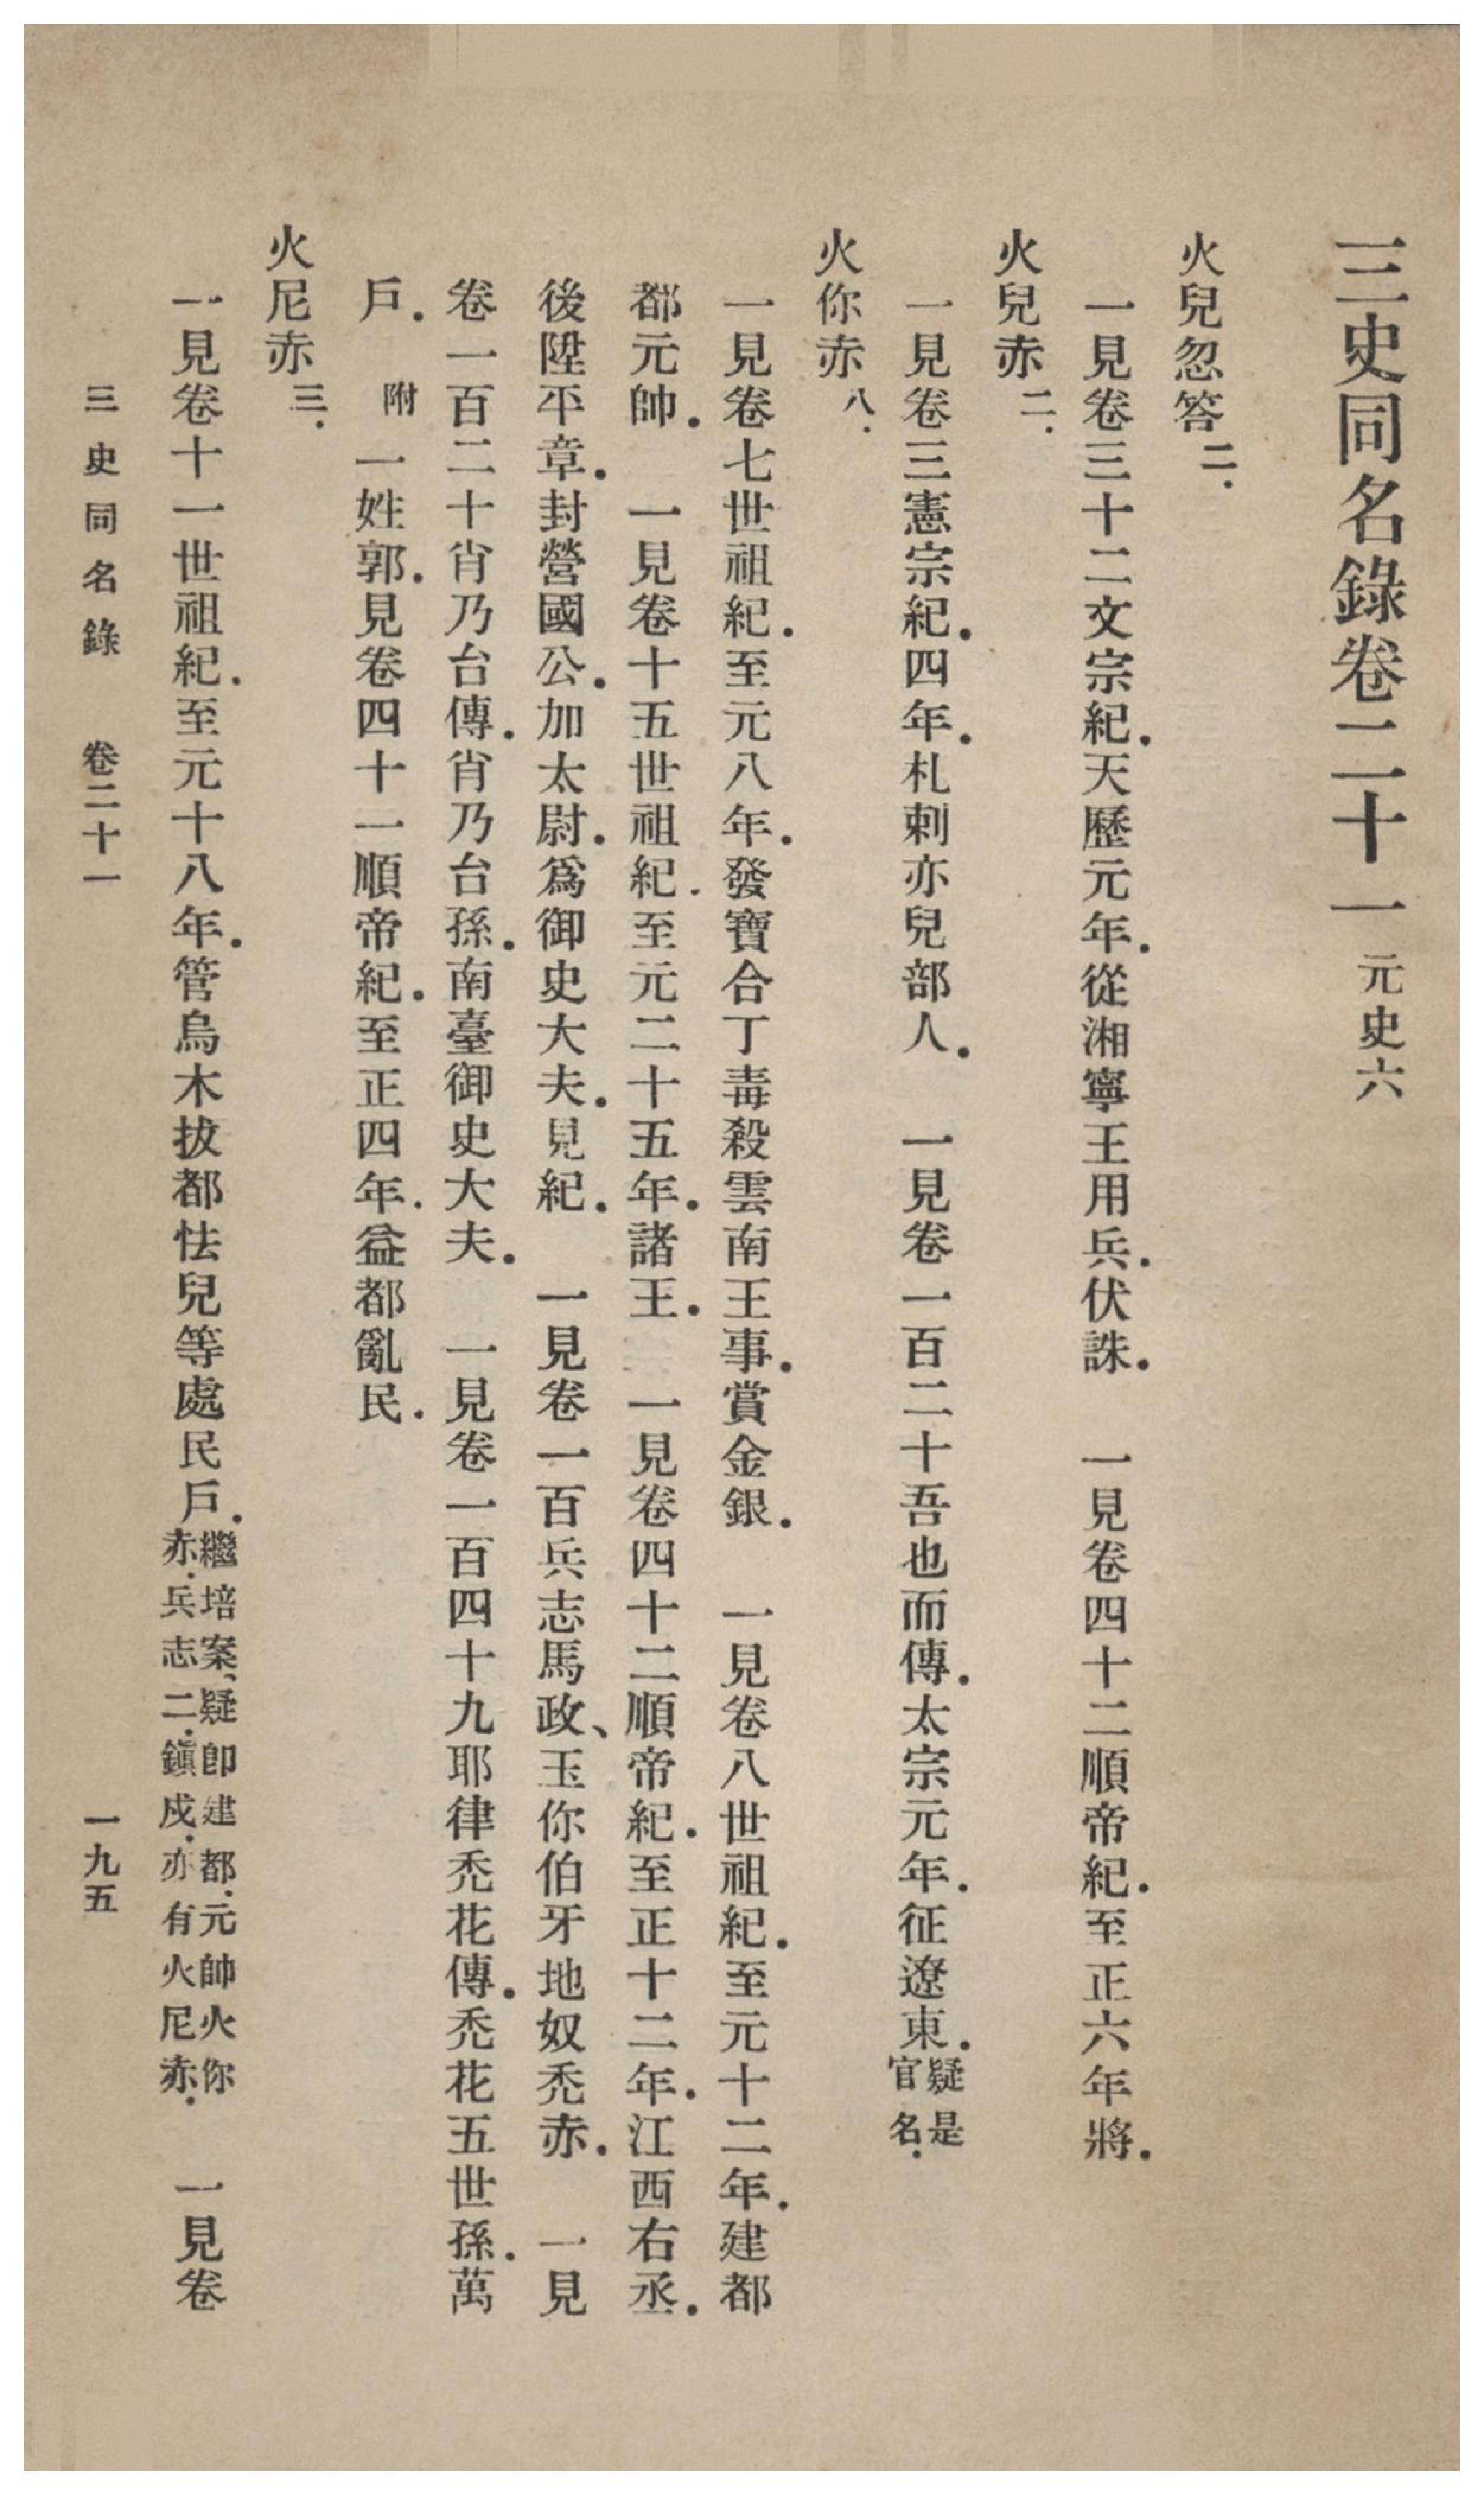 三史同名錄卷二十一元史六
火兒忽答二.
一見卷三十二文宗紀.天歷元年.從湘寧王用兵.伏誅.　一見卷四十二順帝紀.至正六年將.
火兒赤二.
一見卷三憲宗紀.四年.札剌亦兒部人.　一見卷一百二十吾也而傳.太宗元年.征遼東.疑是官名.
火你赤八.
一見卷七世祖紀.至元八年.發寶合丁毒殺雲南王事.賞金銀.　一見卷八世祖紀.至元十二年.建都
都元帥.　一見卷十五世祖紀.至元二十五年.諸王.　一見卷四十二順帝紀.至正十二年.江西右丞.
後陞平章.封營國公.加太尉.爲御史大夫.見紀.　一見卷一百兵志馬政、玉你伯牙地奴禿赤.　一見
卷一百二十肖乃台傳.肖乃台孫.南臺御史大夫.　一見卷一百四十九耶律禿花傳.禿花五世孫.萬
戶.　附　一姓郭.見卷四十一順帝紀.至正四年.益都亂民.
火尼赤三.
一見卷十一世祖紀.至元十八年.管烏木拔都怯兒等處民戶.繼培案、疑卽建都.元帥火你赤.兵志二.鎮戍.亦有火尼赤.　一見卷
三史同名錄　卷二十一　一九五